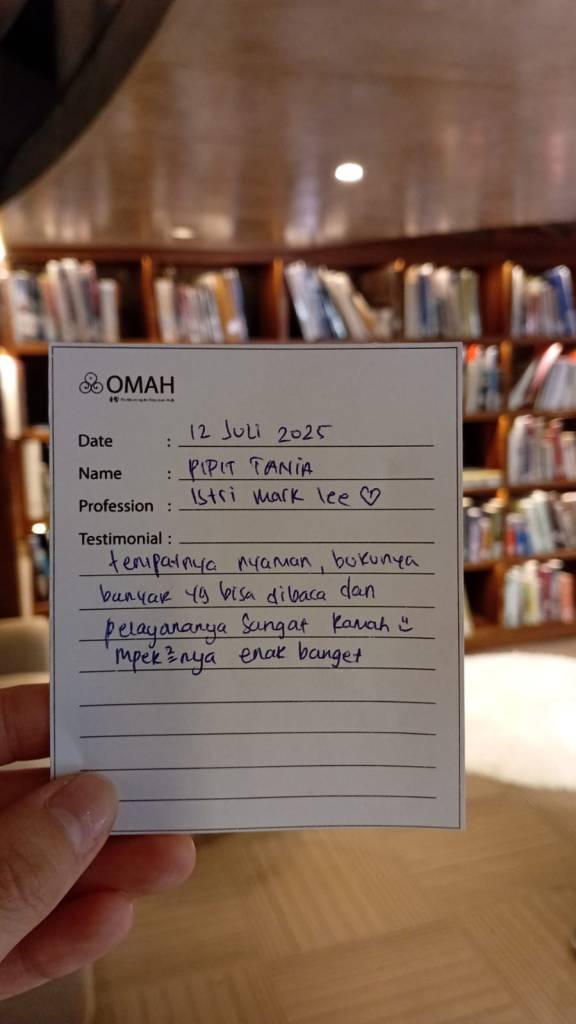 OMAH
Date : 12 Juli 2025
Name : PIPIT TANIA
Profession : Istri Mark Lee ♡
Testimonial :
tempatnya nyaman, bukunya
banyak yg bisa dibaca dan
pelayananya sangat ramah
mpek²nya enak banget